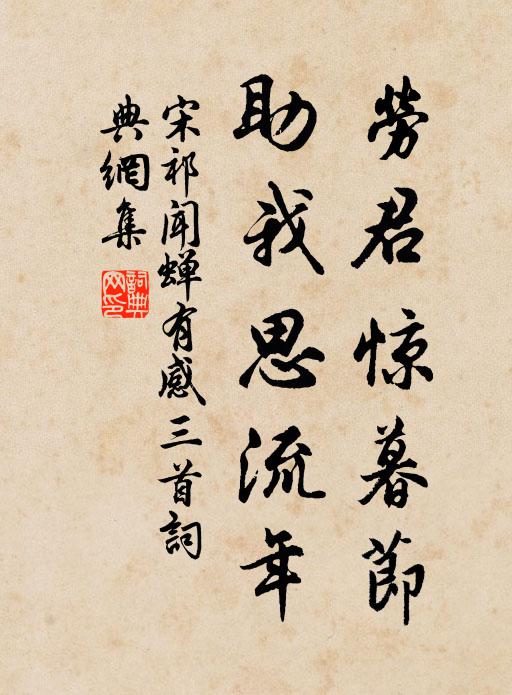 勞君惊暮節
助我思流年
宋祁闻蝉有感三首詞
典網集
詞典网印